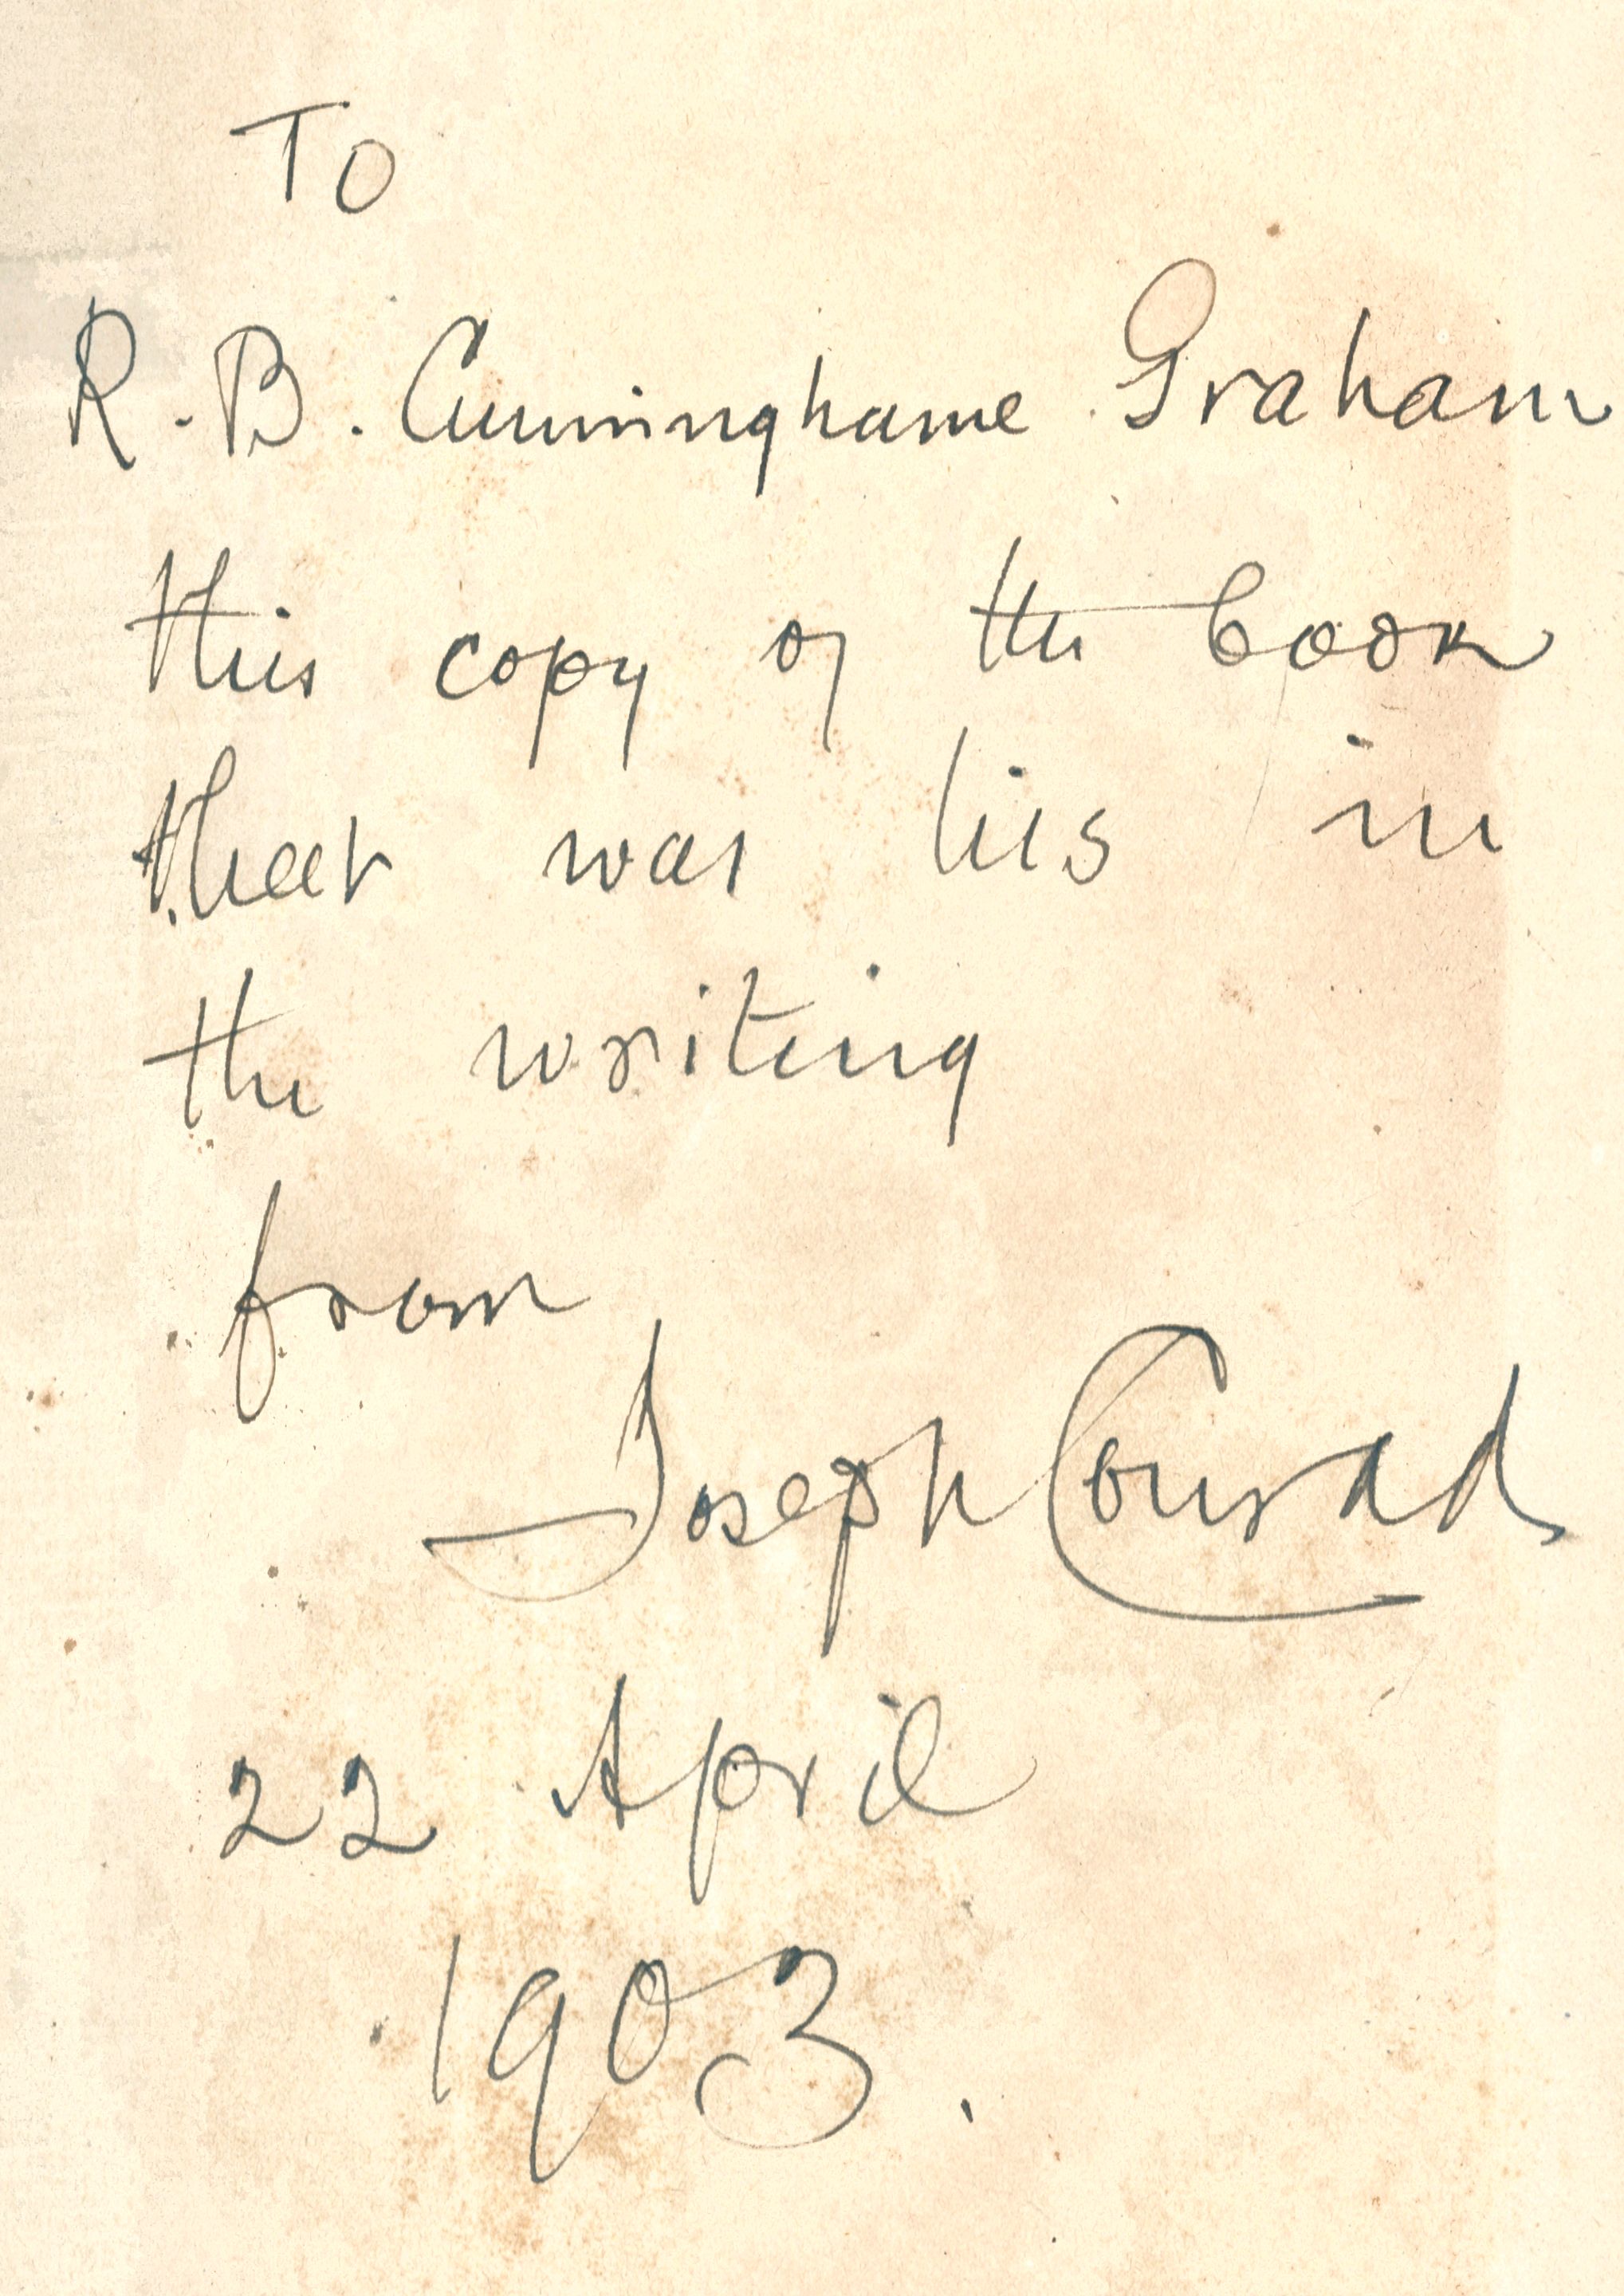 To
R. B. Cunninghame Graham
this copy of the book
that was his in
the writing
from
Joseph Conrad
22 April
1903.